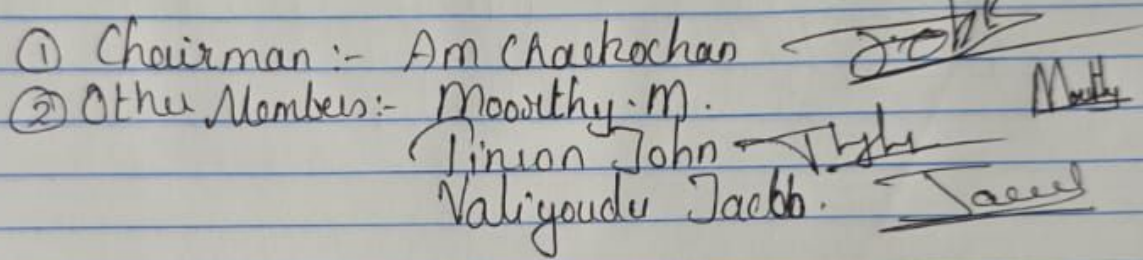 ① Chairman :- Am Chackochan
② Other Members:- Moorthy.M.
Tinion John
Valiyoudu Jacob.